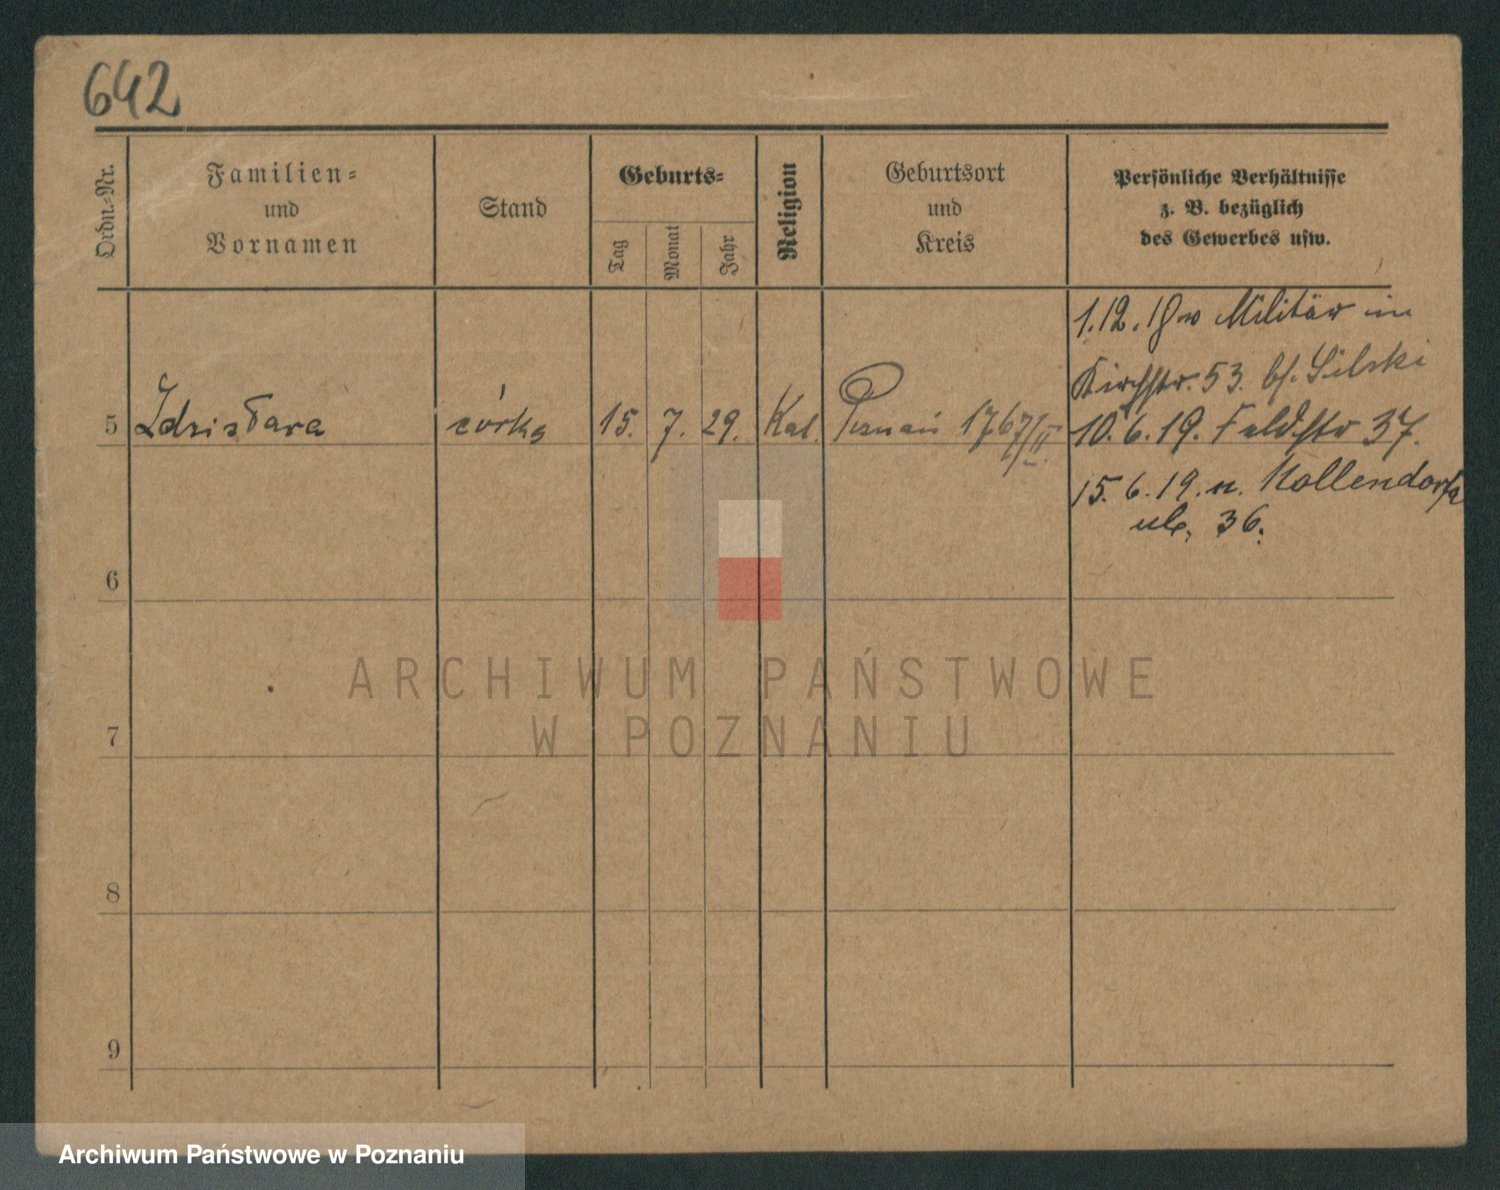 642
Ordn.-Nr.
Familien-
und
Vornamen
Stand
Geburts-
Tag
Monat
Jahr
Religion
Geburtsort
und
Kreis
Persönliche Verhältnisse
z. B. bezüglich
des Gewerbes usw.
1.12.18 Militär in
Kirchstr. 53. bf. Silski
5 Zdzisława córka 15. 7. 29. Kat. Poznań 1767/II. 10.6.19. Feldstr 37.
15.6.19. n. Nollendorfa
ul. 36.
6
7
8
9
ARCHIWUM PAŃSTWOWE
W POZNANIU
Archiwum Państwowe w Poznaniu